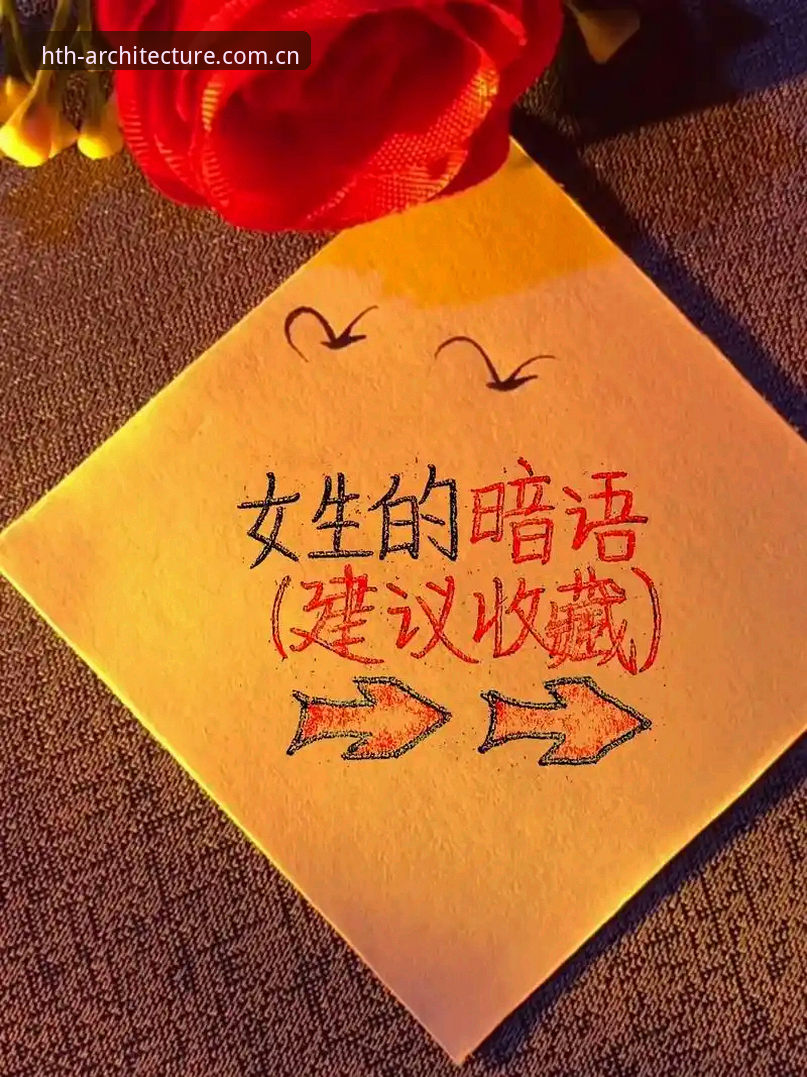 hth-architecture.com.cn
女生的暗语
(建议收藏)